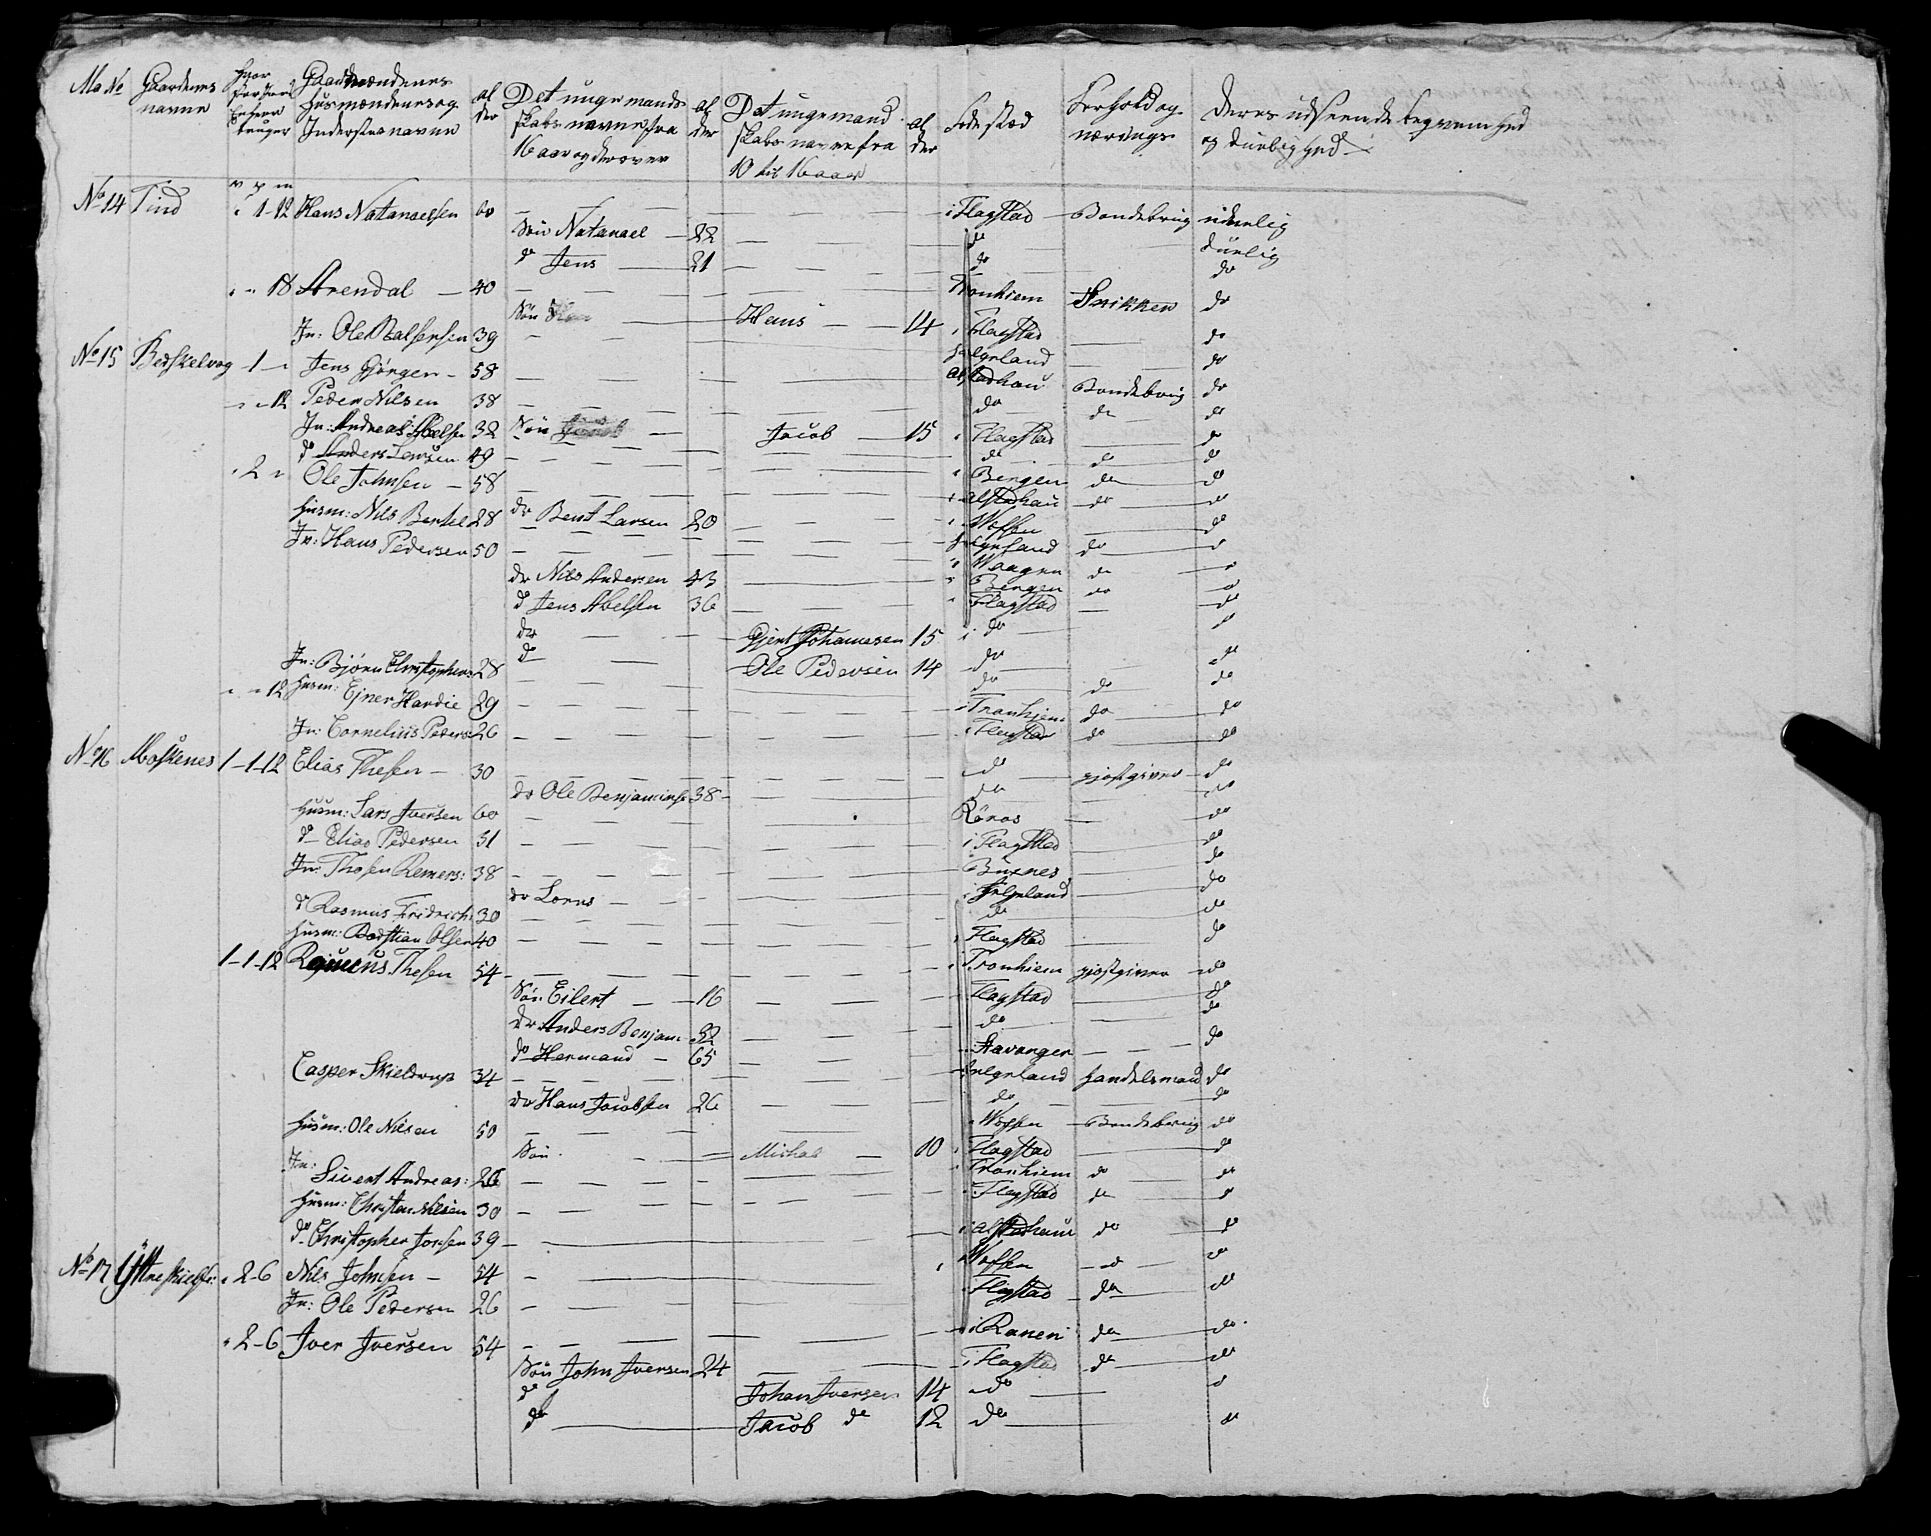 Ma No Gaardenes navne Hvor stor Jord Enhver bruger Gaardmændenes Husmændenes og Inderstes navne al der Det unge mandskabs navne fra 16 aar og derover al der Det unge mandskabs navne fra 10 til 16 aar al der Føde stæd Forhold og nærings Deres udseende begvemhed og duelighed
v p m
No 14 Tind " 1-12 Hans Natanaelsen 60 — i Flagstad Bondebrug udenlig
Søn Natanael 22 — do duelig
do Jens 21 — do do
" " 18 Arendal 40 — Tronhiem Snikker do
Søn Hans 14 i Flagstad do
Jn: Ole Balsersen 39 — Helgeland do
No 15 Berskelvog - 1 - Jens Gjörgen 58 — Alstadhau Bondebrug do
" " 12 Peder Nilsen 38 — do do do
Søn Jacob 15 i Flagstad do
Jn: Andreas Abelsen 32 — do do do
do Anders Larsen 49 — i Bergen do do
" 2 " Ole Johnsen 58 — i Alstedhau do do
dr Bent Larsen 20 — i Woffen do
Husm: Nils Bertel 28 — Helgeland do
Jn: Hans Pedersen 50 — i Waagen do
dr Nils Andersen 43 — i Bergen do
do Jens Abelsen 36 — i Flagstad do
dr Gjert Johannesen 15 i do do
do Ole Pedersen 14 do do
Jn: Bjørn Christophers 28 — do do do
" " 12 Husm: Ejner Hardie 29 — i Tronhjem do do
Jn: Cornelius Peders 26 — i Flagstad do do
No 16 Moskenes 1-1-12 Elias Thesen 30 — do gjestgiver do
dr Ole Benjaminse 38 — do do
Husm: Lars Iversen 60 — Röraas do
do Elias Pedersen 31 — i Flagstad do
Jn: Thosen Remers: 38 — Buxnes do
dr Lorns — i Helgeland do
do Rasmus Fridrich: 30 — do do
Husm: Bastian Olsen 40 — i Flagstad do
1-1-12 Rasmus Thesen 54 — i Tronhiem gjestgiver do
Søn Eilert 16 — Flagstad do
dr Anders Benjam 32 — do do
do Hermand 65 — Stavanger do
Casper Skieldrup 34 — Helgeland Handelsmand do
dr Hans Jacobsen 26 — do do
Husm: Ole Nilsen 50 — Woffen Bondebrug do
Søn Michal 10 i Flagstad do
Jn: Sivert Andreas: 26 — i Tronhiem do do
Husm: Christen Nilsen 30 — i Flagstad do do
do Christopher Jonsen 39 — i Alstedhaue do do
No 17 Yttreskielf: " 2-6 Nils Johnsen 54 — i Woffen do do
Jn: Ole Pedersen 26 — i Flagstad do do
" 2-6 Iver Iversen 54 — i Ranen do do
Søn John Iversen 24 — i Flagstad do do
do Johan Iversen 14 do do
do Jacob do 12 do do